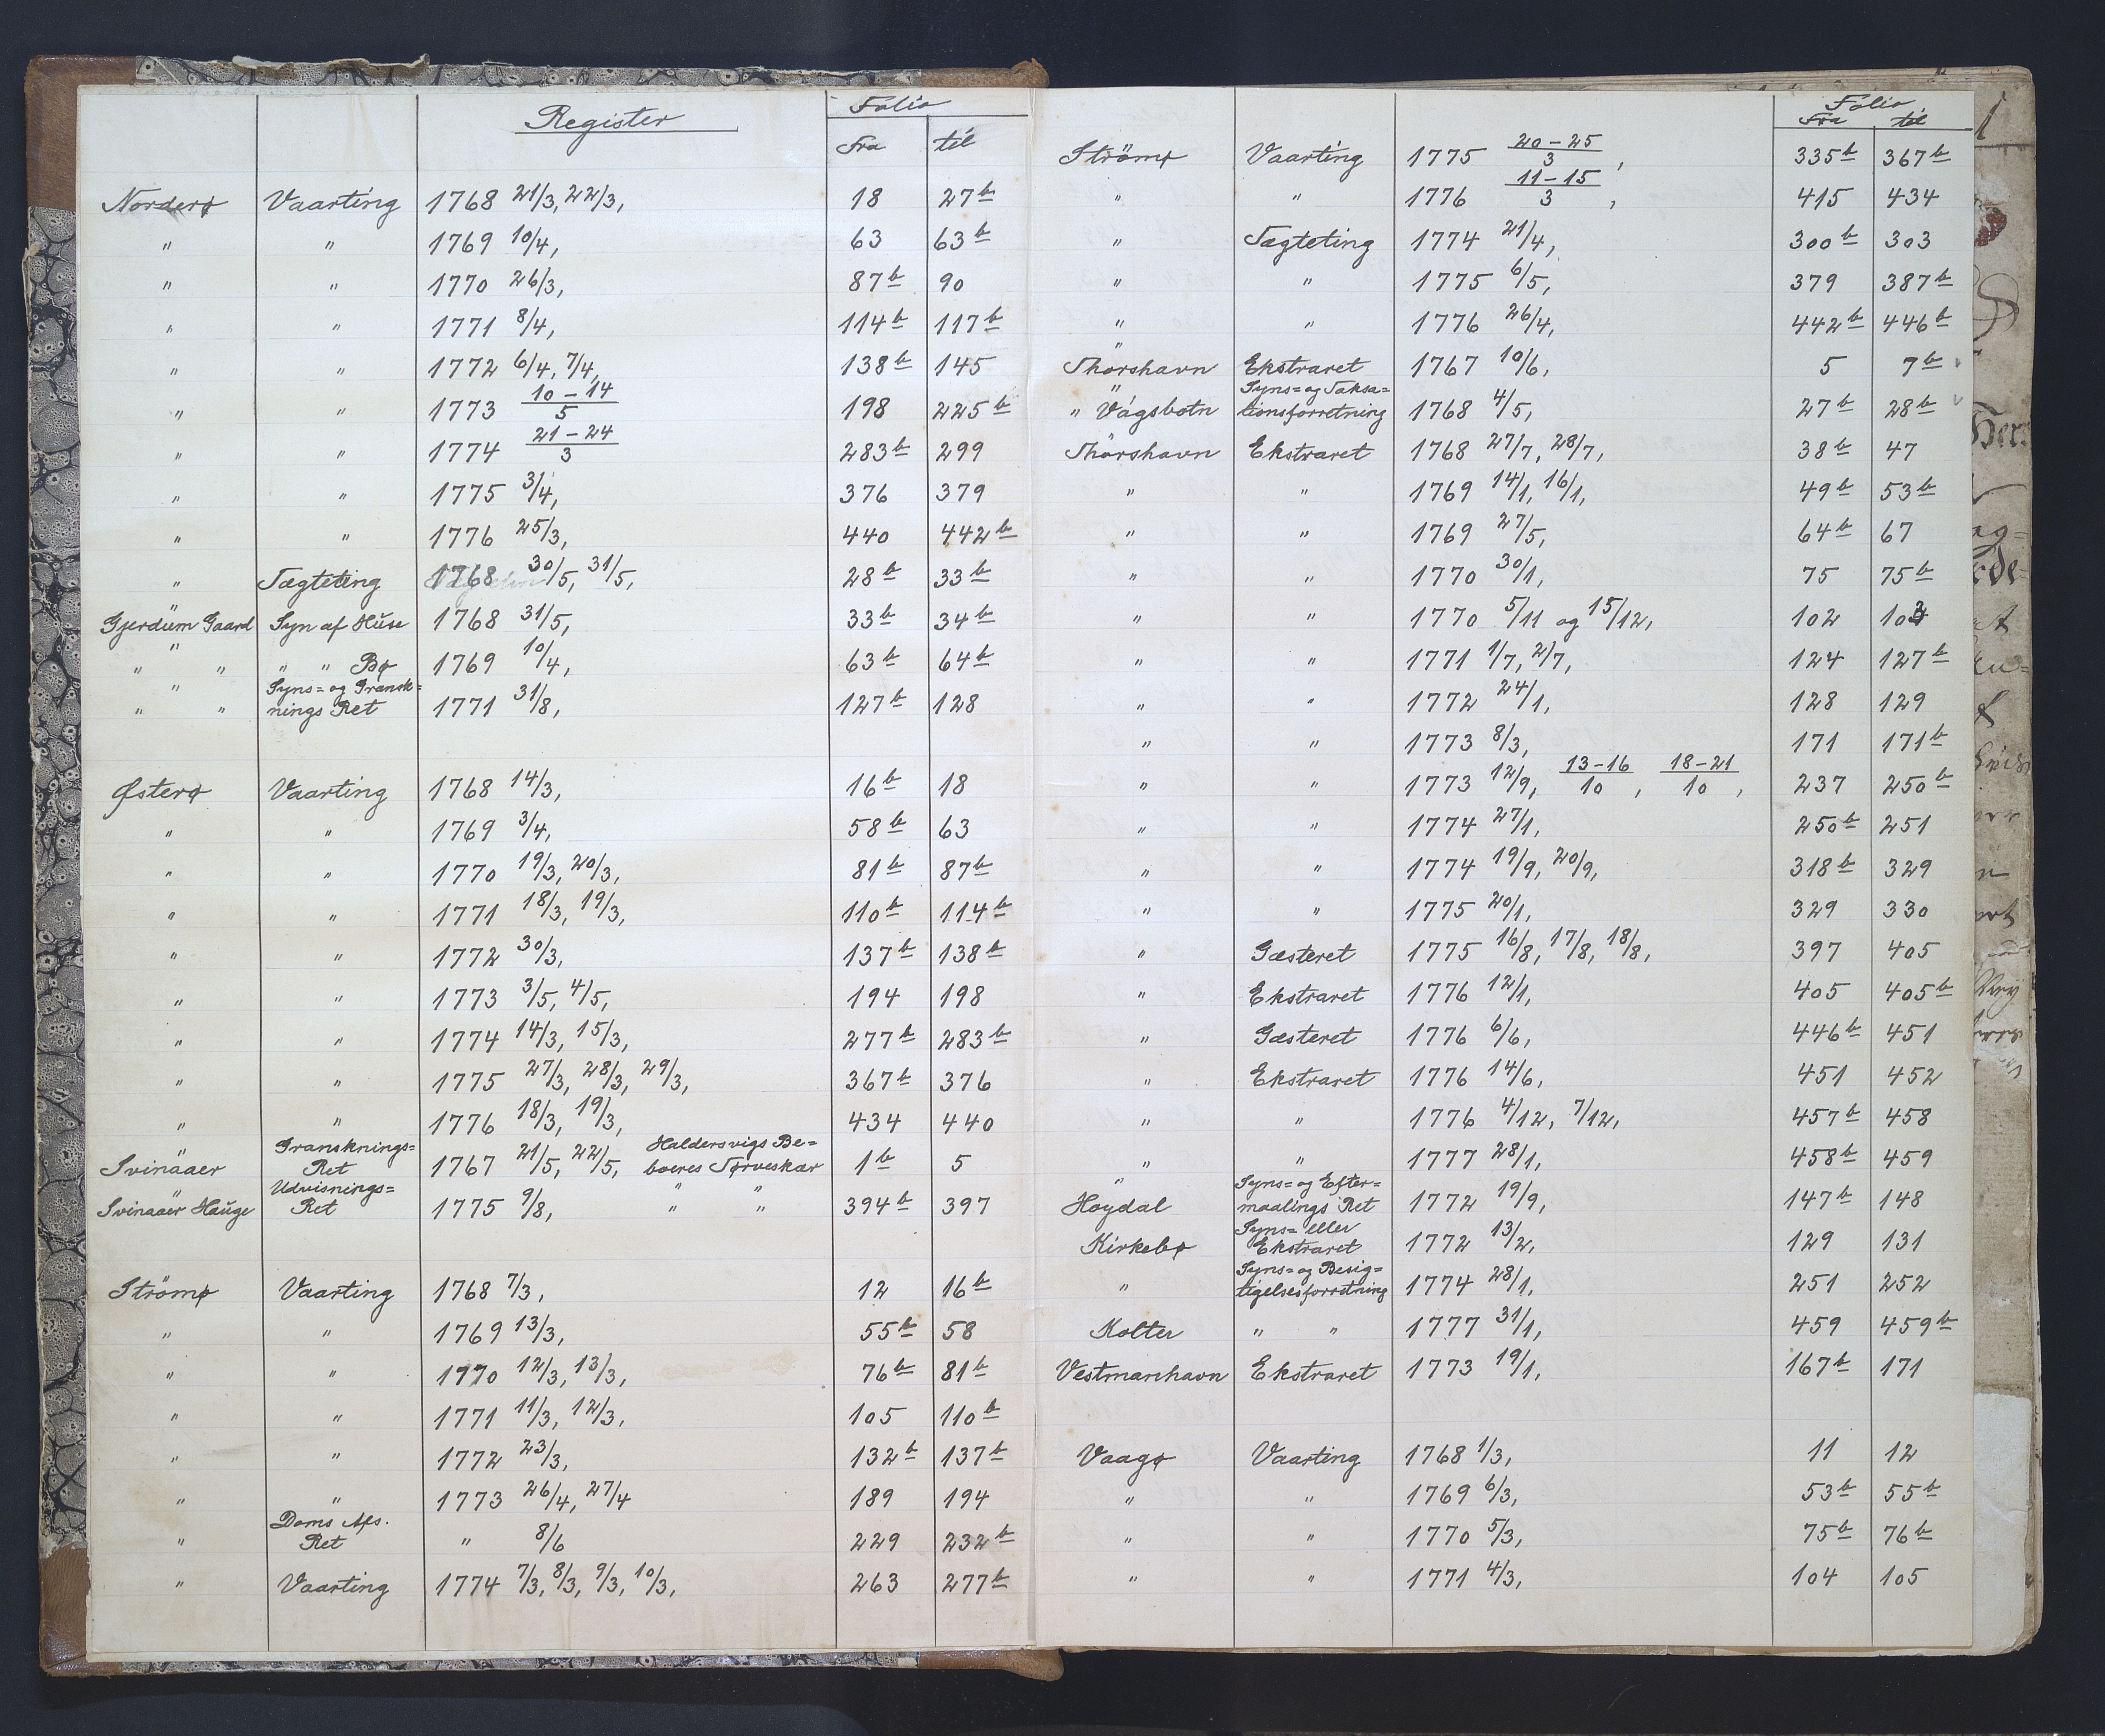 Register
Folio
Fra til
Norderø Vaarting 1768 21/3, 22/3, 18 27b
" " 1769 10/4, 63 63b
" " 1770 26/3, 87b 90
" " 1771 8/4, 114b 117b
" " 1772 6/4, 7/4, 138b 145
" " 1773 10-14/5 198 225b
" " 1774 21-24/3 283b 299
" " 1775 3/4, 376 379
" " 1776 25/3, 440 442b
" Sægteting 1768 30/5, 31/5, 28b 33b
" Gjerdum Gaard Syn af Huse 1768 31/5, 33b 34b
" " " " " Bø 1769 10/4, 63b 64b
" Syns= og Gransk=
" " nings Ret 1771 31/8, 127b 128
Østerø Vaarting 1768 14/3, 16b 18
" " 1769 3/4, 58b 63
" " 1770 19/3, 20/3, 81b 87b
" " 1771 18/3, 19/3, 110b 114b
" " 1772 30/3, 137b 138b
" " 1773 3/5, 4/5, 194 198
" " 1774 14/3, 15/3, 277b 283b
" " 1775 27/3, 28/3, 29/3, 367b 376
" " 1776 18/3, 19/3, 434 440
" Gransknings= Haldersvigs Be=
Svinaaer Ret 1767 21/5, 22/5, boeres Tørveskær 1b 5
" Udvisnings=
Svinaaer Hauge Ret 1775 9/8, " " 394b 397
Strömø Vaarting 1768 7/3, 12 16b
" " 1769 13/3, 55b 58
" " 1770 12/3, 13/3, 76b 81b
" " 1771 11/3, 12/3, 105 110b
" " 1772 23/3, 132b 137b
" " 1773 26/4, 27/4 189 194
Doms Afs.
" Ret " 8/6 229 232b
" Vaarting 1774 7/3, 8/3, 9/3, 10/3, 263 277b
Folio
Fra til
Strömø Vaarting 1775 20-25/3, 335b 367b
" " 1776 11-15/3, 415 434
" Sægteting 1774 21/4, 300b 303
" " 1775 6/5, 379 387b
" " 1776 26/4, 442b 446b
" Thorshavn Ekstraret 1767 10/6, 5 7b
" Syns= og Taksa=
" Vágsbotn tionsforretning 1768 4/5, 27b 28b
Thorshavn Ekstraret 1768 27/7, 28/7, 38b 47
" " 1769 14/1, 16/1, 49b 53b
" " 1769 27/5, 64b 67
" " 1770 30/1, 75 75b
" " 1770 5/11 og 15/12, 102 103
" " 1771 1/7, 2/7, 124 127b
" " 1772 24/1, 128 129
" " 1773 8/3, 171 171b
" " 1773 12/9, 13-16/10, 18-21/10, 237 250b
" " 1774 27/1, 250b 251
" " 1774 19/9, 20/9, 318b 329
" " 1775 20/1, 329 330
" Gæsteret 1775 16/8, 17/8, 18/8, 397 405
" Ekstraret 1776 12/1, 405 405b
" Gæsteret 1776 6/6, 446b 451
" Ekstraret 1776 14/6, 451 452
" " 1776 4/12, 7/12, 457b 458
" " 1777 28/1, 458b 459
" Syns= og Efter=
Hoydal maalings Ret 1772 19/9, 147b 148
Syns= eller
Kirkebø Ekstraret 1772 13/2, 129 131
Syns= og Besig=
" tigelsesforretning 1774 28/1, 251 252
Kolter " " 1777 31/1, 459 459b
Vestmanhavn Ekstraret 1773 19/1, 167b 171
Vaagø Vaarting 1768 1/3, 11 12
" " 1769 6/3, 53b 55b
" " 1770 5/3, 75b 76b
" " 1771 4/3, 104 105